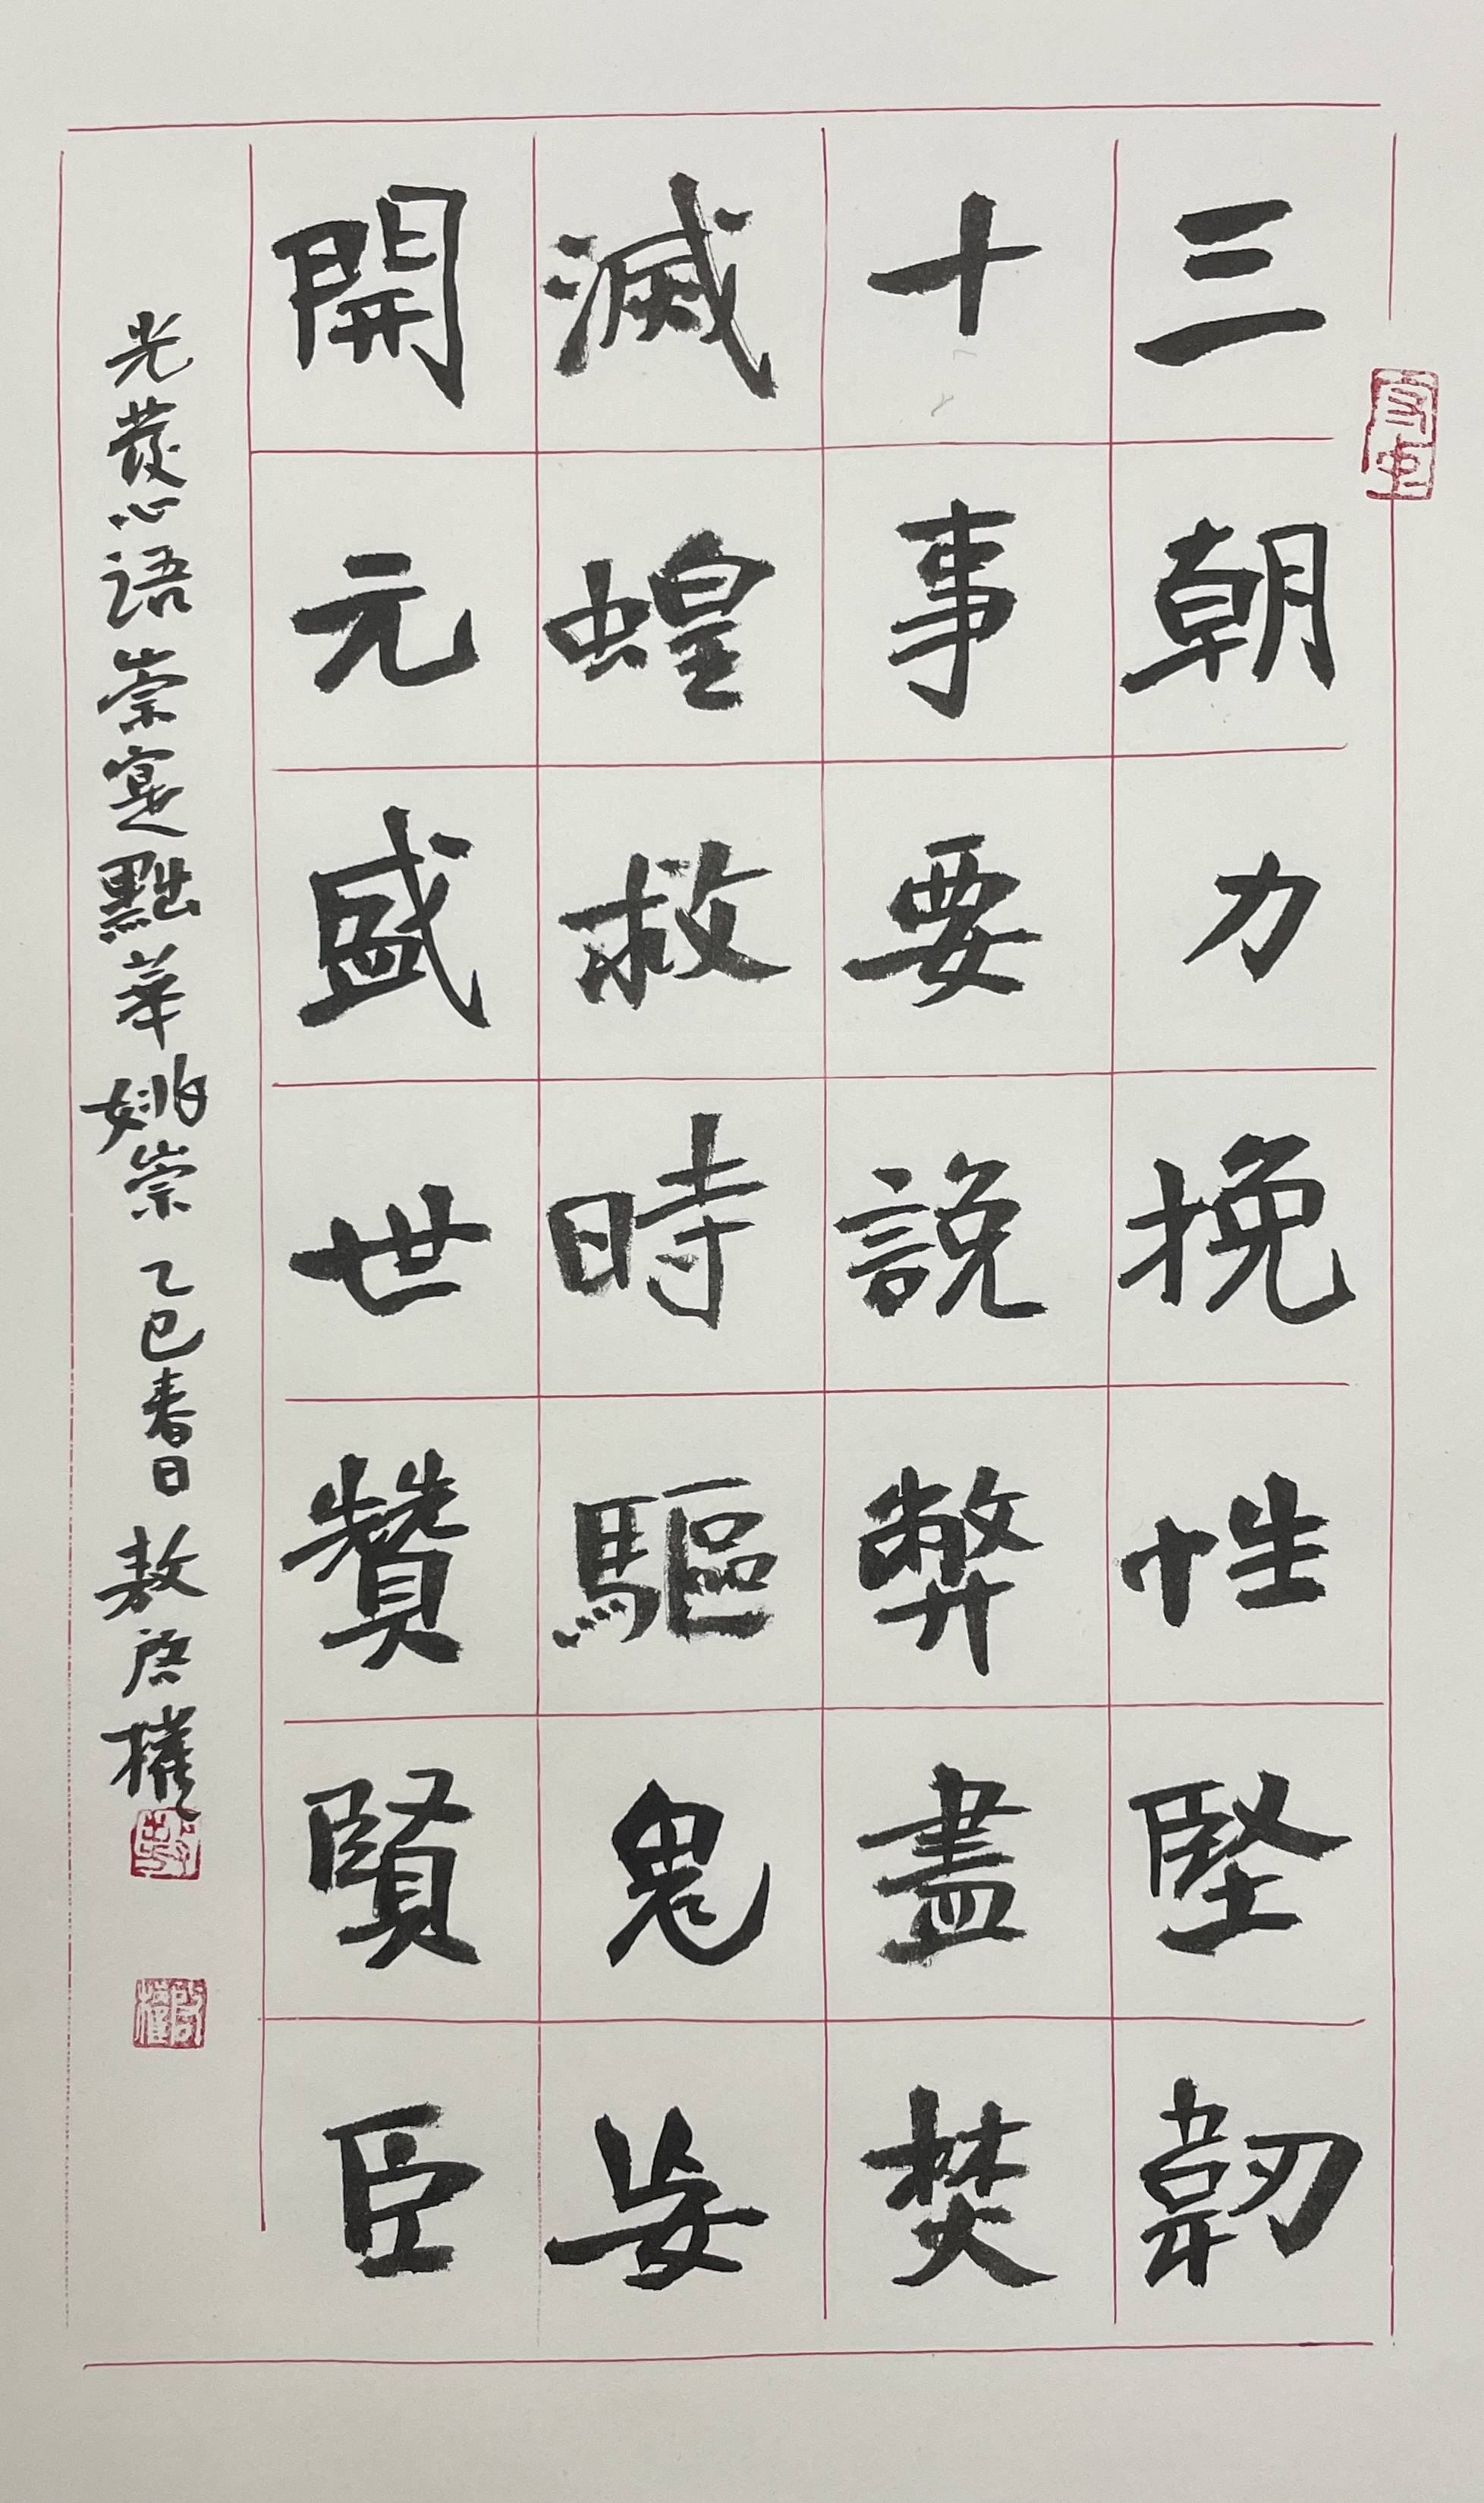 三朝力挽性堅韌
十事要説弊盡焚
滅蝗救時驅鬼妄
開元盛世贊賢臣
光發心語崇寔黜華姚崇 乙巳春日 敖啓權